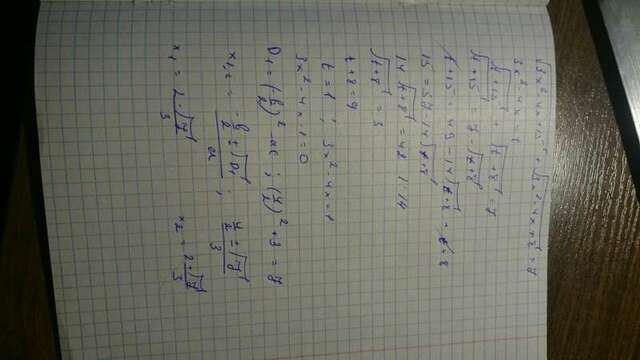 √3x²-4x+15 + √3x²-4x+8 = 7
3x²-4x=t
√t+15 + √t+8 = 7
√t+15 = 7-√t+8
t+15 = 49-14√t+8 + t+8
15 = 57-14√t+8
14√t+8 = 42 | :14
√t+8 = 3
t+8=9
t=1; 3x²-4x=1
3x²-4x-1=0
D₁=(b/2)²-ac; (4/2)²+3=7
x₁,₂ = -b/2±√D₁/a; 4/2±√7/3
x₁ = 2-√7/3 x₂ = 2+√7/3